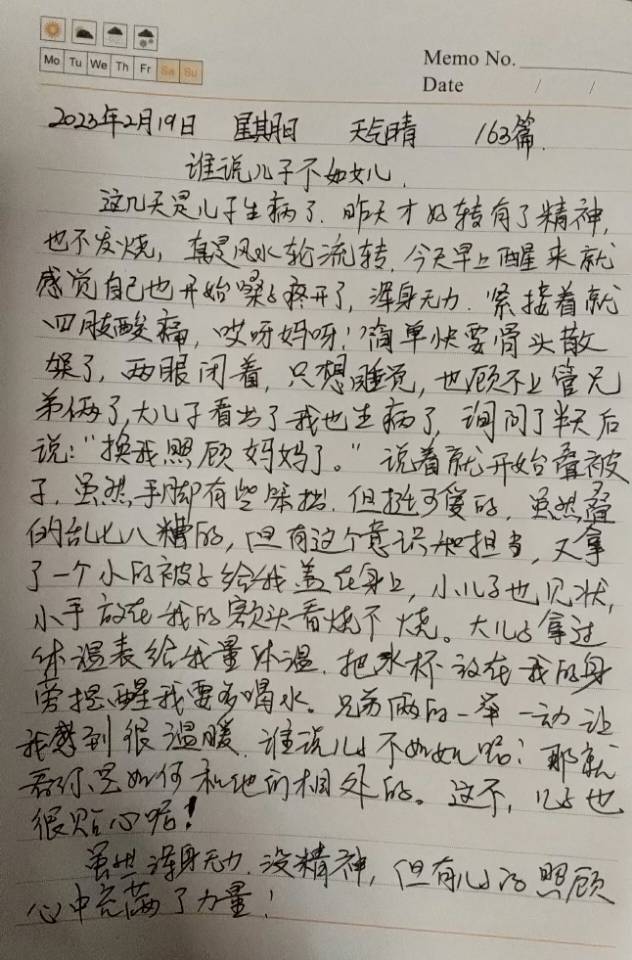 Mo Tu We Th Fr Sa Su
Memo No.
Date / /
2023年2月19日 星期日 天气晴 163篇.
谁说儿子不如女儿.
这几天是儿子生病了.昨天才好转有了精神,
也不发烧,真是风水轮流转.今天早上醒来就
感觉自己也开始嗓子疼开了,浑身无力.紧接着就
四肢酸痛,哎呀妈呀!简单快要骨头散
架了,两眼闭着,只想睡觉,也顾不上管兄
弟俩了,大儿子看出了我也生病了,询问了半天后
说:“换我照顾妈妈了。”说着就开始叠被
子.虽然手脚有些笨拙.但挺可爱的,虽然叠
的乱七八糟的,但有这个意识和担当,又拿
了一个小的被子给我盖在身上,小儿子也见状,
小手放在我的额头看烧不烧。大儿子拿过
体温表给我量体温.把水杯放在我的身
旁提醒我要多喝水。兄弟俩的一举一动让
我感到很温暖.谁说儿子不如女儿呢?那就
看你是如何和他们相处的。这不,儿子也
很贴心呢!
虽然浑身无力.没精神,但有儿子的照顾
心中充满了力量!